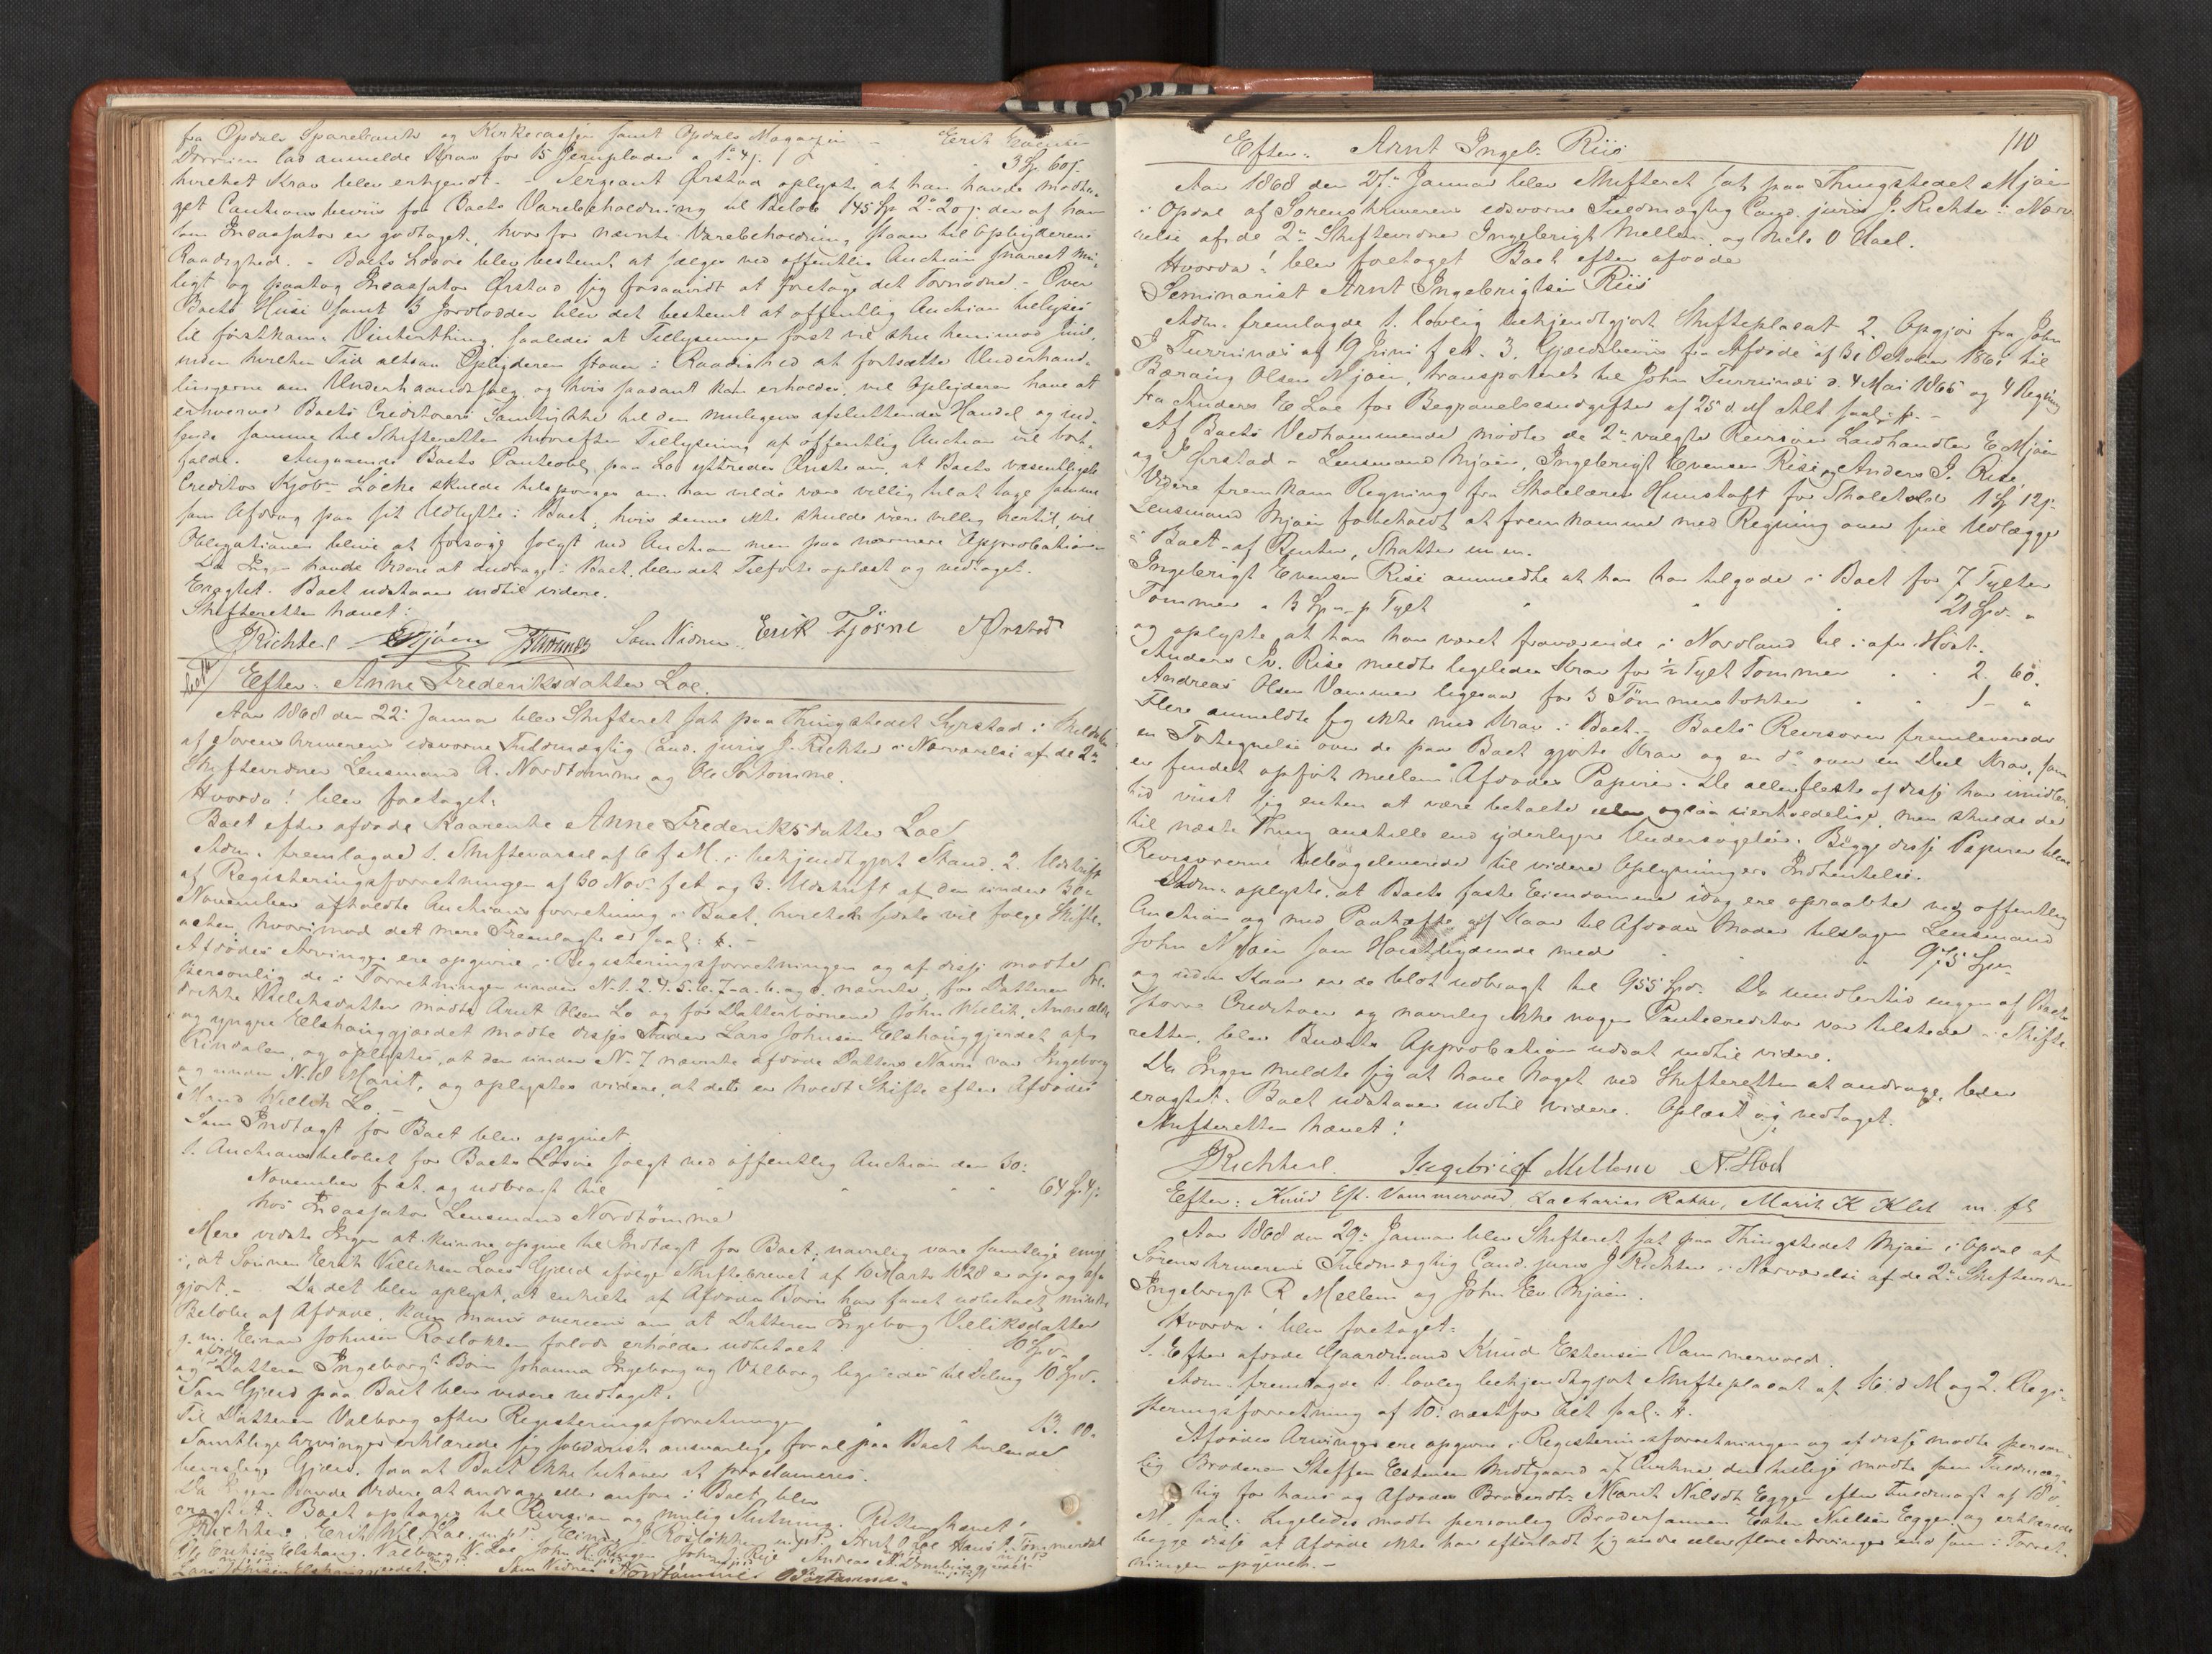 fra Opdals Sparebank og Kirkecassen samt Opdals Magazin - Erik Evensen
lod anmelde Krav for 15 Jernplader a 1 # 4 s. 3 Sp. 60 s.
hvilket Krav blev erkjendt. - Sergeant Ørstad oplyste, at han havde modta-
get Cautionsbeviis for Boets Varebeholdning til Beløb 145 Sp 2 # 20 s. der af ham
som Incassator er godtaget, hvorfor nævnte Varebeholdning staaer til Opbyderens
Raadighed. - Boets Løsøre blev bestemt at sælges ved offentlig Auction snarest mu-
ligt og paatog Incassator Ørstad sig forsaavidt at foretage det Fornødne. - Over
Boets Huse samt 3 Jordlodder blev det bestemt at offentlig Auction belyses
til førstkom. Vinterthing, saaledes at Tillysningen først vil skee henimod
inden hvilken Tid altsaa Opbyderen staaer i Raadighed at fortsætte Underhand-
lingerne om Underhaandssalg, og hvis saadant kan erholdes, vil Opbyderen have at
erhverve Boets Creditorers Samtykke til den muligens afsluttende Handel og ind-
sende samme til Skifteretten hvorefter Tillysning af offentlig Auction vil bort-
falde. Angaaende Boets Panteobl. paa Lo yttredes Ønske om, at Boets væsentligste
Creditor Kjøbm. Locke skulde tilspørges om han vilde være villig til at tage samme
som Afdrag paa sit Udlytte i Boet, hvis denne ikke skulde være villig hertil, vil
Obligationen blive at forsøge solgt ved Auction men paa nærmere Approbation. -
Da Ingen havde Videre at andrage i Boet, blev det Tilførte oplæst og vedtaget.
Eragtet. Boet udstaaer indtil videre.
Skifteretten hævet:
JRichter EMjøen Som Vidner. Erik Fjøsne JØrstad
Efter. Anne Frederiksdatter Loe.
Aar 1868 den 22: Januar blev Skifteret sat paa Thingstedet Syrstad i Meldalen
af Sorenskriverens edsvorne Fuldmægtig Cand. juris J. Richter i Nærværelse af de 2de
Skiftevidner Lensmand A. Nordtømme og Ole Sørtømme.
Hvorda! blev foretaget.
Boet efter afdøde Kaarenke Anne Frederiksdatter Loe.
Adm. fremlagde 1. Skiftevarsel af 6 f. M. i bekjendtgjort Stand. 2. Udskrift
af Registreringsforretningen af 30 Nov. f. A. og 3. Udskrift af den under 30te
November afholdte Auctionsforretning i Boet, hvilken sidste vil følge Skifte-
acten, hvorimod det mere Fremlagte er saal: #. -
Afdødes Arvinger ere opgivne i Registreringsforretningen og af disse mødte
personlig de i Forretningen under N. 1. 2. 4. 5. 6. 7-a. b. og c. nævnte, for Datteren Fre-
drikke Willeksdatter mødte Arnt Olsen Lo og for Datterbørnene John Willik, Anne ældre
og yngre Elshauggjærdet mødte disses Fader Lars Johnsen Elshauggjerdet af
Rindalen, og oplystes, at den under N. 7 nævnte afdøde Datters Navn var Ingeborg
og under N. 8 Marit, og oplystes videre, at dette er holdt Skifte efter Afdødes
Mand Willik Lo. -
Som Indtægt for Boet blev opgivet.
1. Auctionsbeløbet for Boets Løsøre solgt ved offentlig Auction den 30:
November f. A. og udbragt til 64 Sp. 4 s.
hos Incassator Lensmand Nordtømme
Mere vidste Ingen at kunne opgive til Indtægt for Boet; navnlig vare samtlige enige
i, at Sønnen Erik Villiksen Loes Gjæld ifølge Skiftebrevet af 10 Marts 1828 er op og af-
gjort. - Da det blev oplyst, at enkelte af Afdødes Børn har faaet udbetalt mindre
Beløbe af Afdøde, kom man overeens om at Datteren Ingeborg Villiksdatter
g. m. Einar Johnsen Rosløkken forlods erholder udbetalt 10 Spd.
og afdøde Datteren Ingeborgs Børn Johanna Ingeborg og Valborg ligeledes til Deling 10 Spd.
Som Gjæld paa Boet blev videre vedtaget.
Til Datteren Valborg efter Registreringsforretningen 13. 00.
Samtlige Arvinger erklærede sig solidarisk ansvarlige for al paa Boet hvilende
beviislige Gjæld, saa at Boet ikke behøver at proclameres.
Da Ingen havde Videre at andrage eller anføre i Boet, blev
eragtet: Boet optages til Revision og mulig Slutning. Retten hævet!
JRichter. Erik Wil. Loe. m. p. P. Einar J. Rosløkken m. p. P. Arnt O. Loe Hans O. Tømmerdal
Ole Eriksen Elshaug. Valborg W. Loe John H. Ræge John Reje Andreas
Lars Johnsen Elshauggjærdet. Som Vidner Nordtømme OSørtømme.
110
Efter. Arnt Ingeb. Riis
Aar 1868 den 27de Januar blev Skifteret sat paa Thingstedet Mjøen
i Opdal af Sorenskriverens edsvorne Fuldmægtig Cand. juris J. Richter i Nærv-
relse af de 2de Skiftevidner Ingebrigt Mellem og Nels O Hoel.
Hvorda! blev foretaget Boet efter afdøde
Seminarist Arnt Ingebrigtsen Riis
Adm. fremlagde 1. lovlig bekjendtgjort Skifteplacat 2. Opgjør fra John
J Furunæs af 19 Juni f. A. 3. Gjældsbeviis fra Afdøde af 31 October 1861 til
Olsen Mjøen, transporteret til John Furunæs d. 4 Mai 1865 og 4 Regning
fra Anders E Loe for Begravelsesudgifter af 25 d. M. Alt saal: #. -
Af Boets Vedkommende mødte de 2de valgte Revisorer Landhandler E Mjøen
og J Ørstad - Lensmand Mjøen, Ingebrigt Evensen Rise og Anders J. Rise.
Videre fremkom Regning fra Skolelærer Hunstoft for Skolehold 1 Sp 12 s.
Lensmand Mjøen forbeholdt at fremkomme med Regning over sine Udlægge
i Boet - af Renter, Skatter m. m.
Ingebrigt Evensen Rise anmeldte at han har tilgode i Boet for 7 Tylter
Tømmer a 3 Spd. p. Tylt 21 Spd. "
og oplyste at han har været fraværende i Nordland til i afv. Høst.
Anders Jv. Rise meldte ligeledes Krav for ½ Tylt Tømmer 2. 60.
Andreas Olsen Vammer ligesaa for 3 Tømmerstokker 1 - "
Flere anmeldte sig ikke med Krav i Boet. - Boets Revisorer fremleverede
en Fortegnelse over de paa Boet gjorte Krav og en do over en Deel Krav, som
er fundet opført mellem Afdødes Papirer. De allerfleste af disse har imidler-
tid viist sig enten at være betalte eller ogsaa uerholdelige, men skulde de
til næste Thing anstille end yderligere Undersøgelse. Begge disse Papirer blev
Revisorerne tilbageleverede til videre Oplysningers Indhentelse.
Adm. oplyste, at Boets faste Eiendomme idag ere opraabte ved offentlig
Auction og med Paahæfte af Kaar til Afdødes Moder tilslagen Lensmand
John N Mjøen som Høistbydende med 975 Spd.
og uden Kaar ere de blot udbragt til 955 Spd. Da imidlertid ingen af Boets
større Creditorer og navnlig ikke nogen Pantecreditor var tilstede i Skifte-
retten, blev Budets Approbation udsat indtil videre.
Da Ingen meldte sig at have Noget ved Skifteretten at andrage, blev
eragtet. Boet udstaaer indtil videre. Oplæst og vedtaget.
Skifteretten hævet!
JRichter. Ingebrigt Mellem N. Hoel
Efter: Knud Est. Vammervold, Zacharias Rathe, Marit K Klet m. fl
Aar 1868 den 29: Januar blev Skifteret sat paa Thingstedet Mjøen i Opdal af
Sorenskriverens Fuldmægtig Cand. juris J Richter i Nærværelse af de 2de Skiftevidner
Ingebrigt R Mellem og John Ev. Mjøen.
Hvorda! blev foretaget:
1. Efter afdøde Gaardmand Knud Estensen Vammervold.
Adm. fremlagde 1. lovlig bekjendtgjort Skifteplacat af 16: d M og 2. Regi-
streringsforretning af 10: næstfor. Alt saal: #.
Afdødes Arvinger ere opgivne i Registreringsforretningen og af disse mødte person-
lig Broderen Steffen Estensen Midtgaard af der tillige mødte som Fuldmæg-
tig for hans og Afdødes Broderdt. Marit Nilsdt. Eggen efter Fuldmagt af 18 d.
M. saal: Ligeledes mødte personlig Brodersønnen Esten Nielsen Eggen og erklærede
begge disse at Afdøde ikke har efterladt sig andre eller flere Arvinger end som i Forret-
ningen opgivet. -